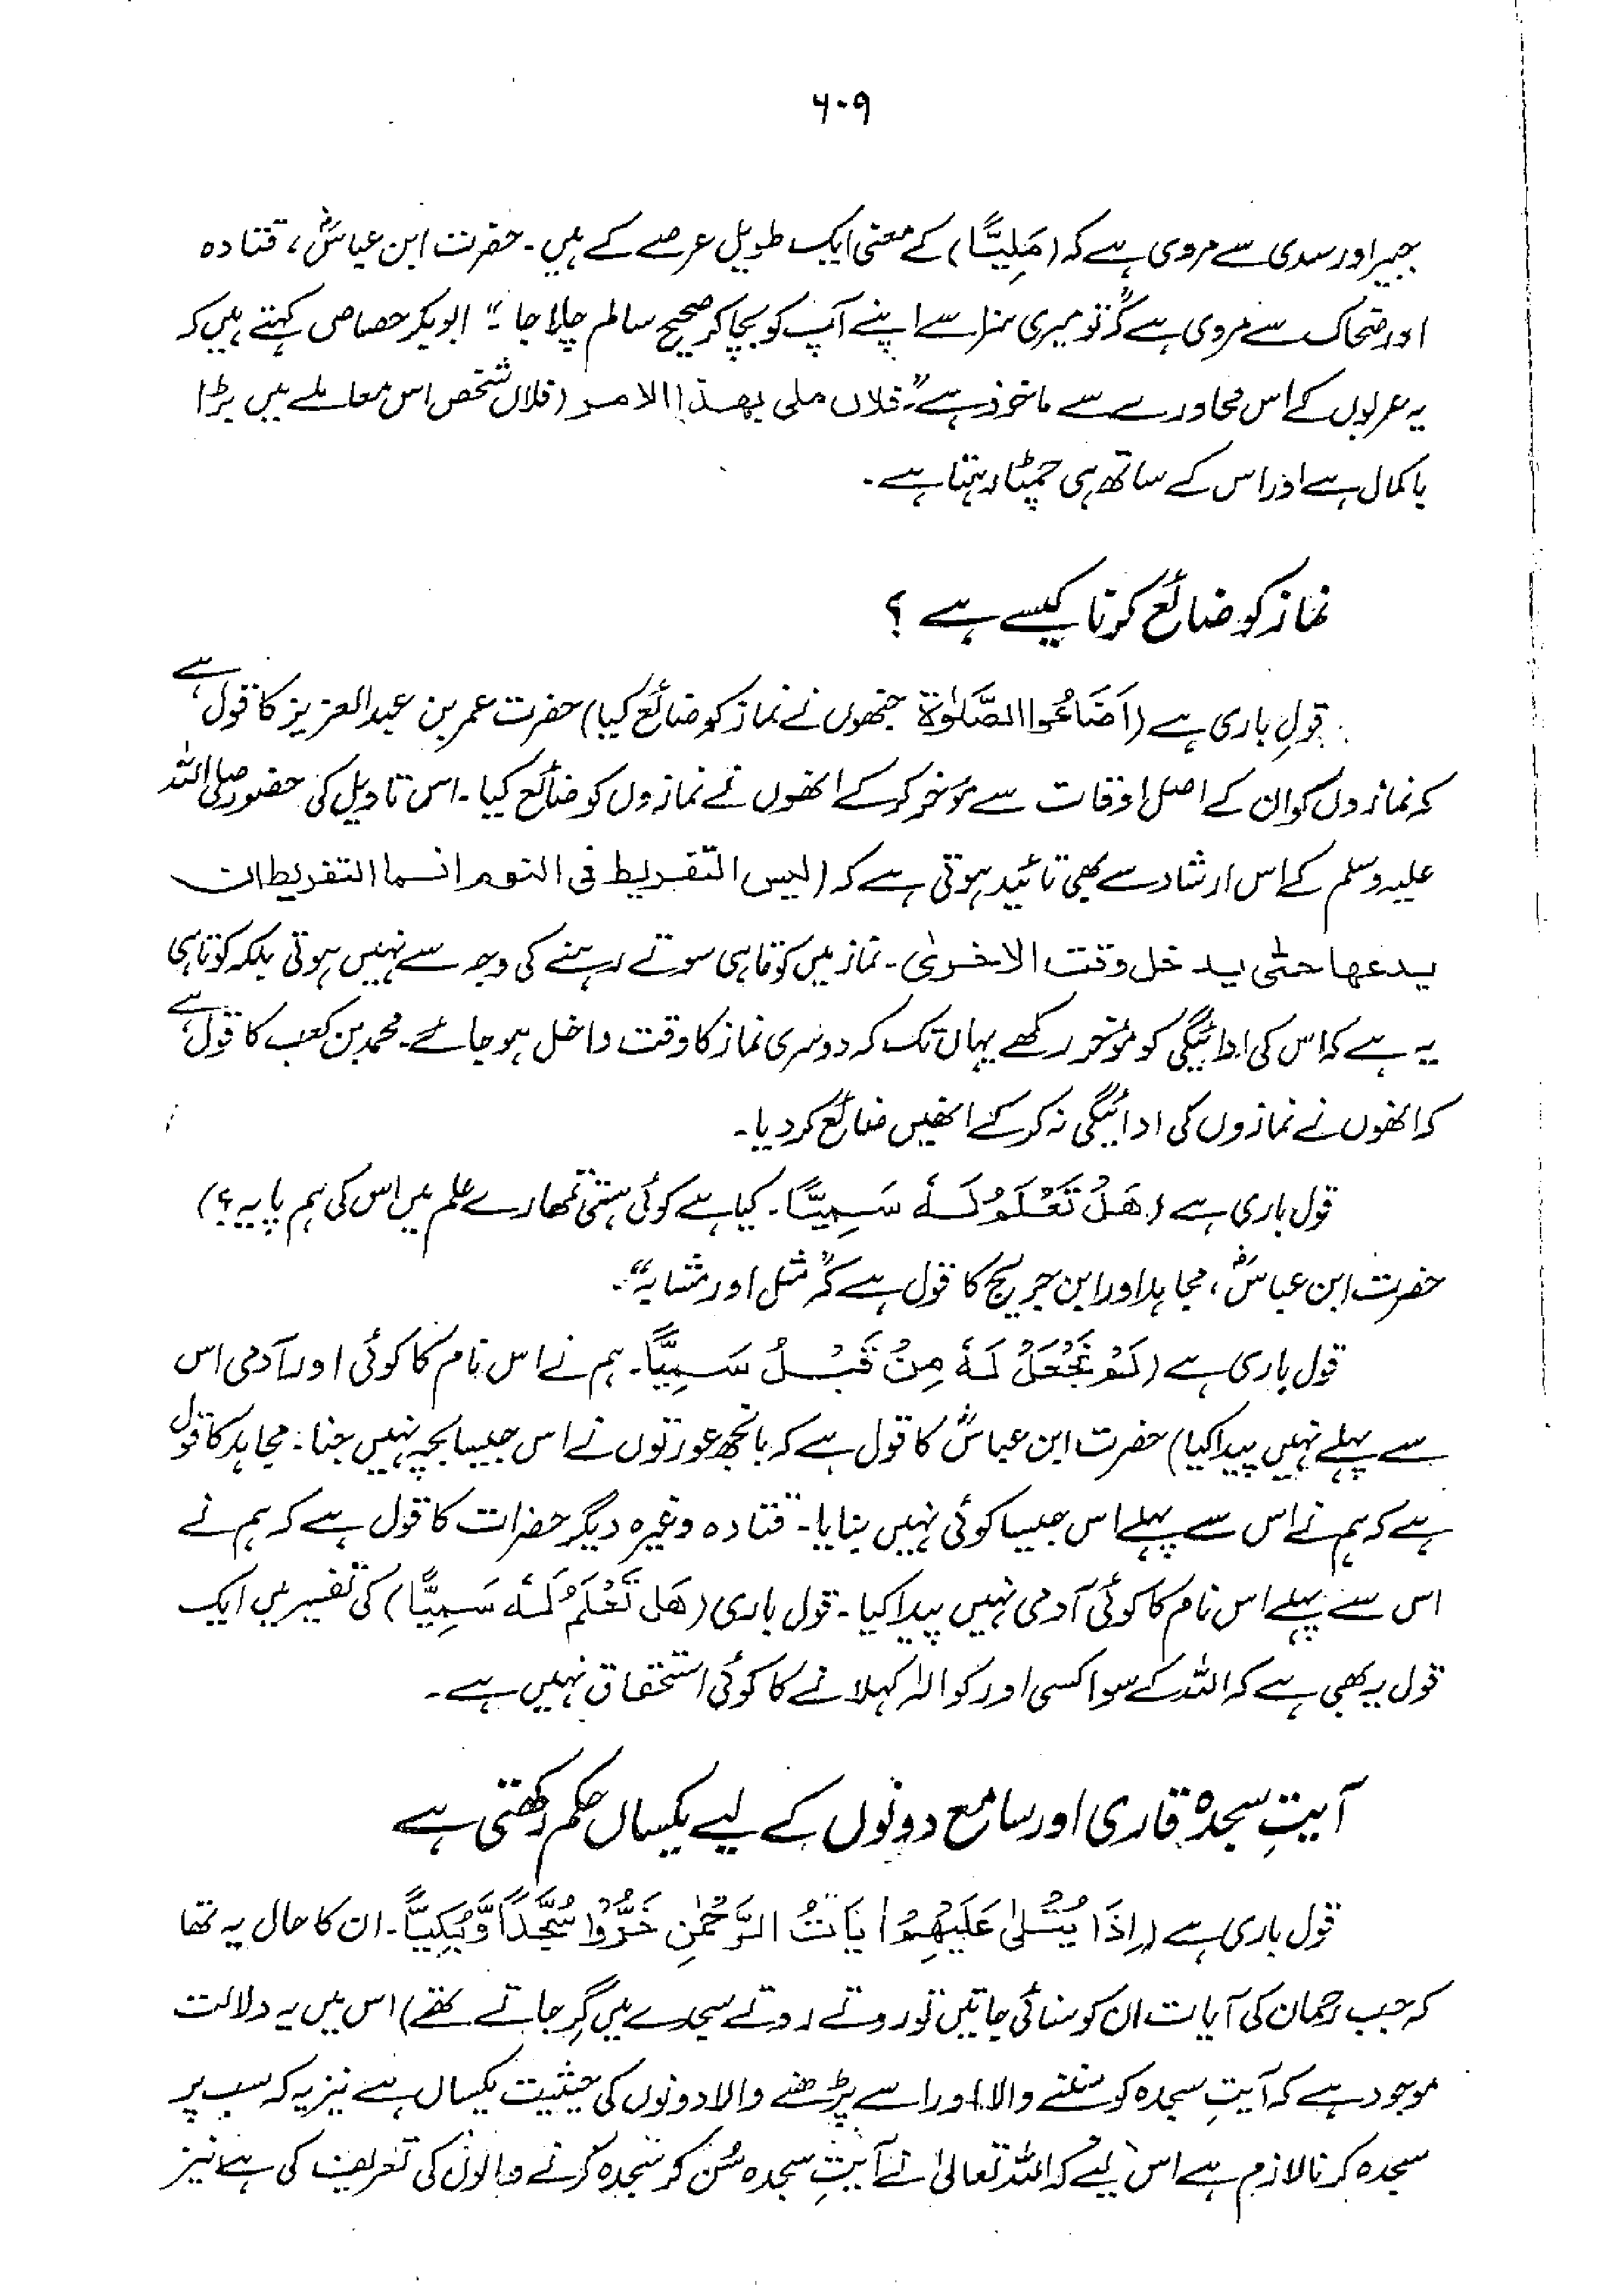 ۶۰۹
جبیر اور سدی سے مروی ہے کہ (مَلِيًّا) کے معنی ایک طویل عرصے کے ہیں۔ حضرت ابن عباسؓ، قتادہ
اور ضحاک سے مروی ہے کہ "تو میری سزا سے اپنے آپ کو بچا کر صحیح سالم چلا جا۔" ابوبکر حصاص کہتے ہیں کہ
یہ عربوں کے اس محاورے سے ماخوذ ہے "فلان ملی بھذا الامر (فلاں شخص اس معاملے میں بڑا
باکمال ہے اور اس کے ساتھ ہی چمٹا رہتا ہے۔
نماز کو ضائع کرنا کیسے ہے ؟
قولِ باری ہے (اَضَاعُوا الصَّلٰوۃ جنھوں نے نماز کو ضائع کیا) حضرت عمر بن عبدالعزیز کا قول ہے
کہ نمازوں کو ان کے اصل اوقات سے مؤخر کر کے انھوں نے نمازوں کو ضائع کیا۔ اس تاویل کی حضور صلی اللہ
علیہ وسلم کے اس ارشاد سے بھی تائید ہوتی ہے کہ (لیس التفریط فی النوم انما التفریط ان
یدعھا حتٰی یدخل وقت الاخرٰی۔ نماز میں کوتاہی سوتے رہنے کی وجہ سے نہیں ہوتی بلکہ کوتاہی
یہ ہے کہ اس کی ادائیگی کو مؤخر رکھے یہاں تک کہ دوسری نماز کا وقت داخل ہو جائے۔ محمد بن کعب کا قول ہے
کہ انھوں نے نمازوں کی ادائیگی نہ کر کے انھیں ضائع کر دیا۔
قول باری ہے (هَلْ تَعْلَمُ لَهٗ سَمِيًّا۔ کیا ہے کوئی ہستی تمھارے علم میں اس کی ہم پایہ؟)
حضرت ابن عباسؓ، مجاہد اور ابن جریج کا قول ہے کہ "مثل اور مشابہ"۔
قول باری ہے (لَمْ نَجْعَلْ لَهٗ مِنْ قَبْلُ سَمِيًّا۔ ہم نے اس نام کا کوئی اور آدمی اس
سے پہلے نہیں پیدا کیا) حضرت ابن عباسؓ کا قول ہے کہ بانجھ عورتوں نے اس جیسا بچہ نہیں جنا۔ مجاہد کا قول
ہے کہ ہم نے اس سے پہلے اس جیسا کوئی نہیں بنایا۔ قتادہ وغیرہ دیگر حضرات کا قول ہے کہ ہم نے
اس سے پہلے اس نام کا کوئی آدمی نہیں پیدا کیا۔ قول باری (هَل تَعْلَمُ لَهٗ سَمِيًّا) کی تفسیر میں ایک
قول یہ بھی ہے کہ اللہ کے سوا کسی اور کو الٰہ کہلانے کا کوئی استحقاق نہیں ہے۔
آیتِ سجدہ قاری اور سامع دونوں کے لیے یکساں حکم رکھتی ہے
قول باری ہے (اِذَا يُتْلٰى عَلَيْهِمْ اٰيَاتُ الرَّحْمٰنِ خَرُّوْا سُجَّدًا وَّبُكِيًّا۔ ان کا حال یہ تھا
کہ جب رحمان کی آیات ان کو سنائی جاتیں تو روتے روتے سجدے میں گِر جاتے تھے) اس میں یہ دلالت
موجود ہے کہ آیتِ سجدہ کو سننے والا اور اسے پڑھنے والا دونوں کی حیثیت یکساں ہے نیز یہ کہ سب پر
سجدہ کرنا لازم ہے اس لیے کہ اللہ تعالیٰ نے آیتِ سجدہ سُن کر سجدہ کرنے والوں کی تعریف کی ہے نیز